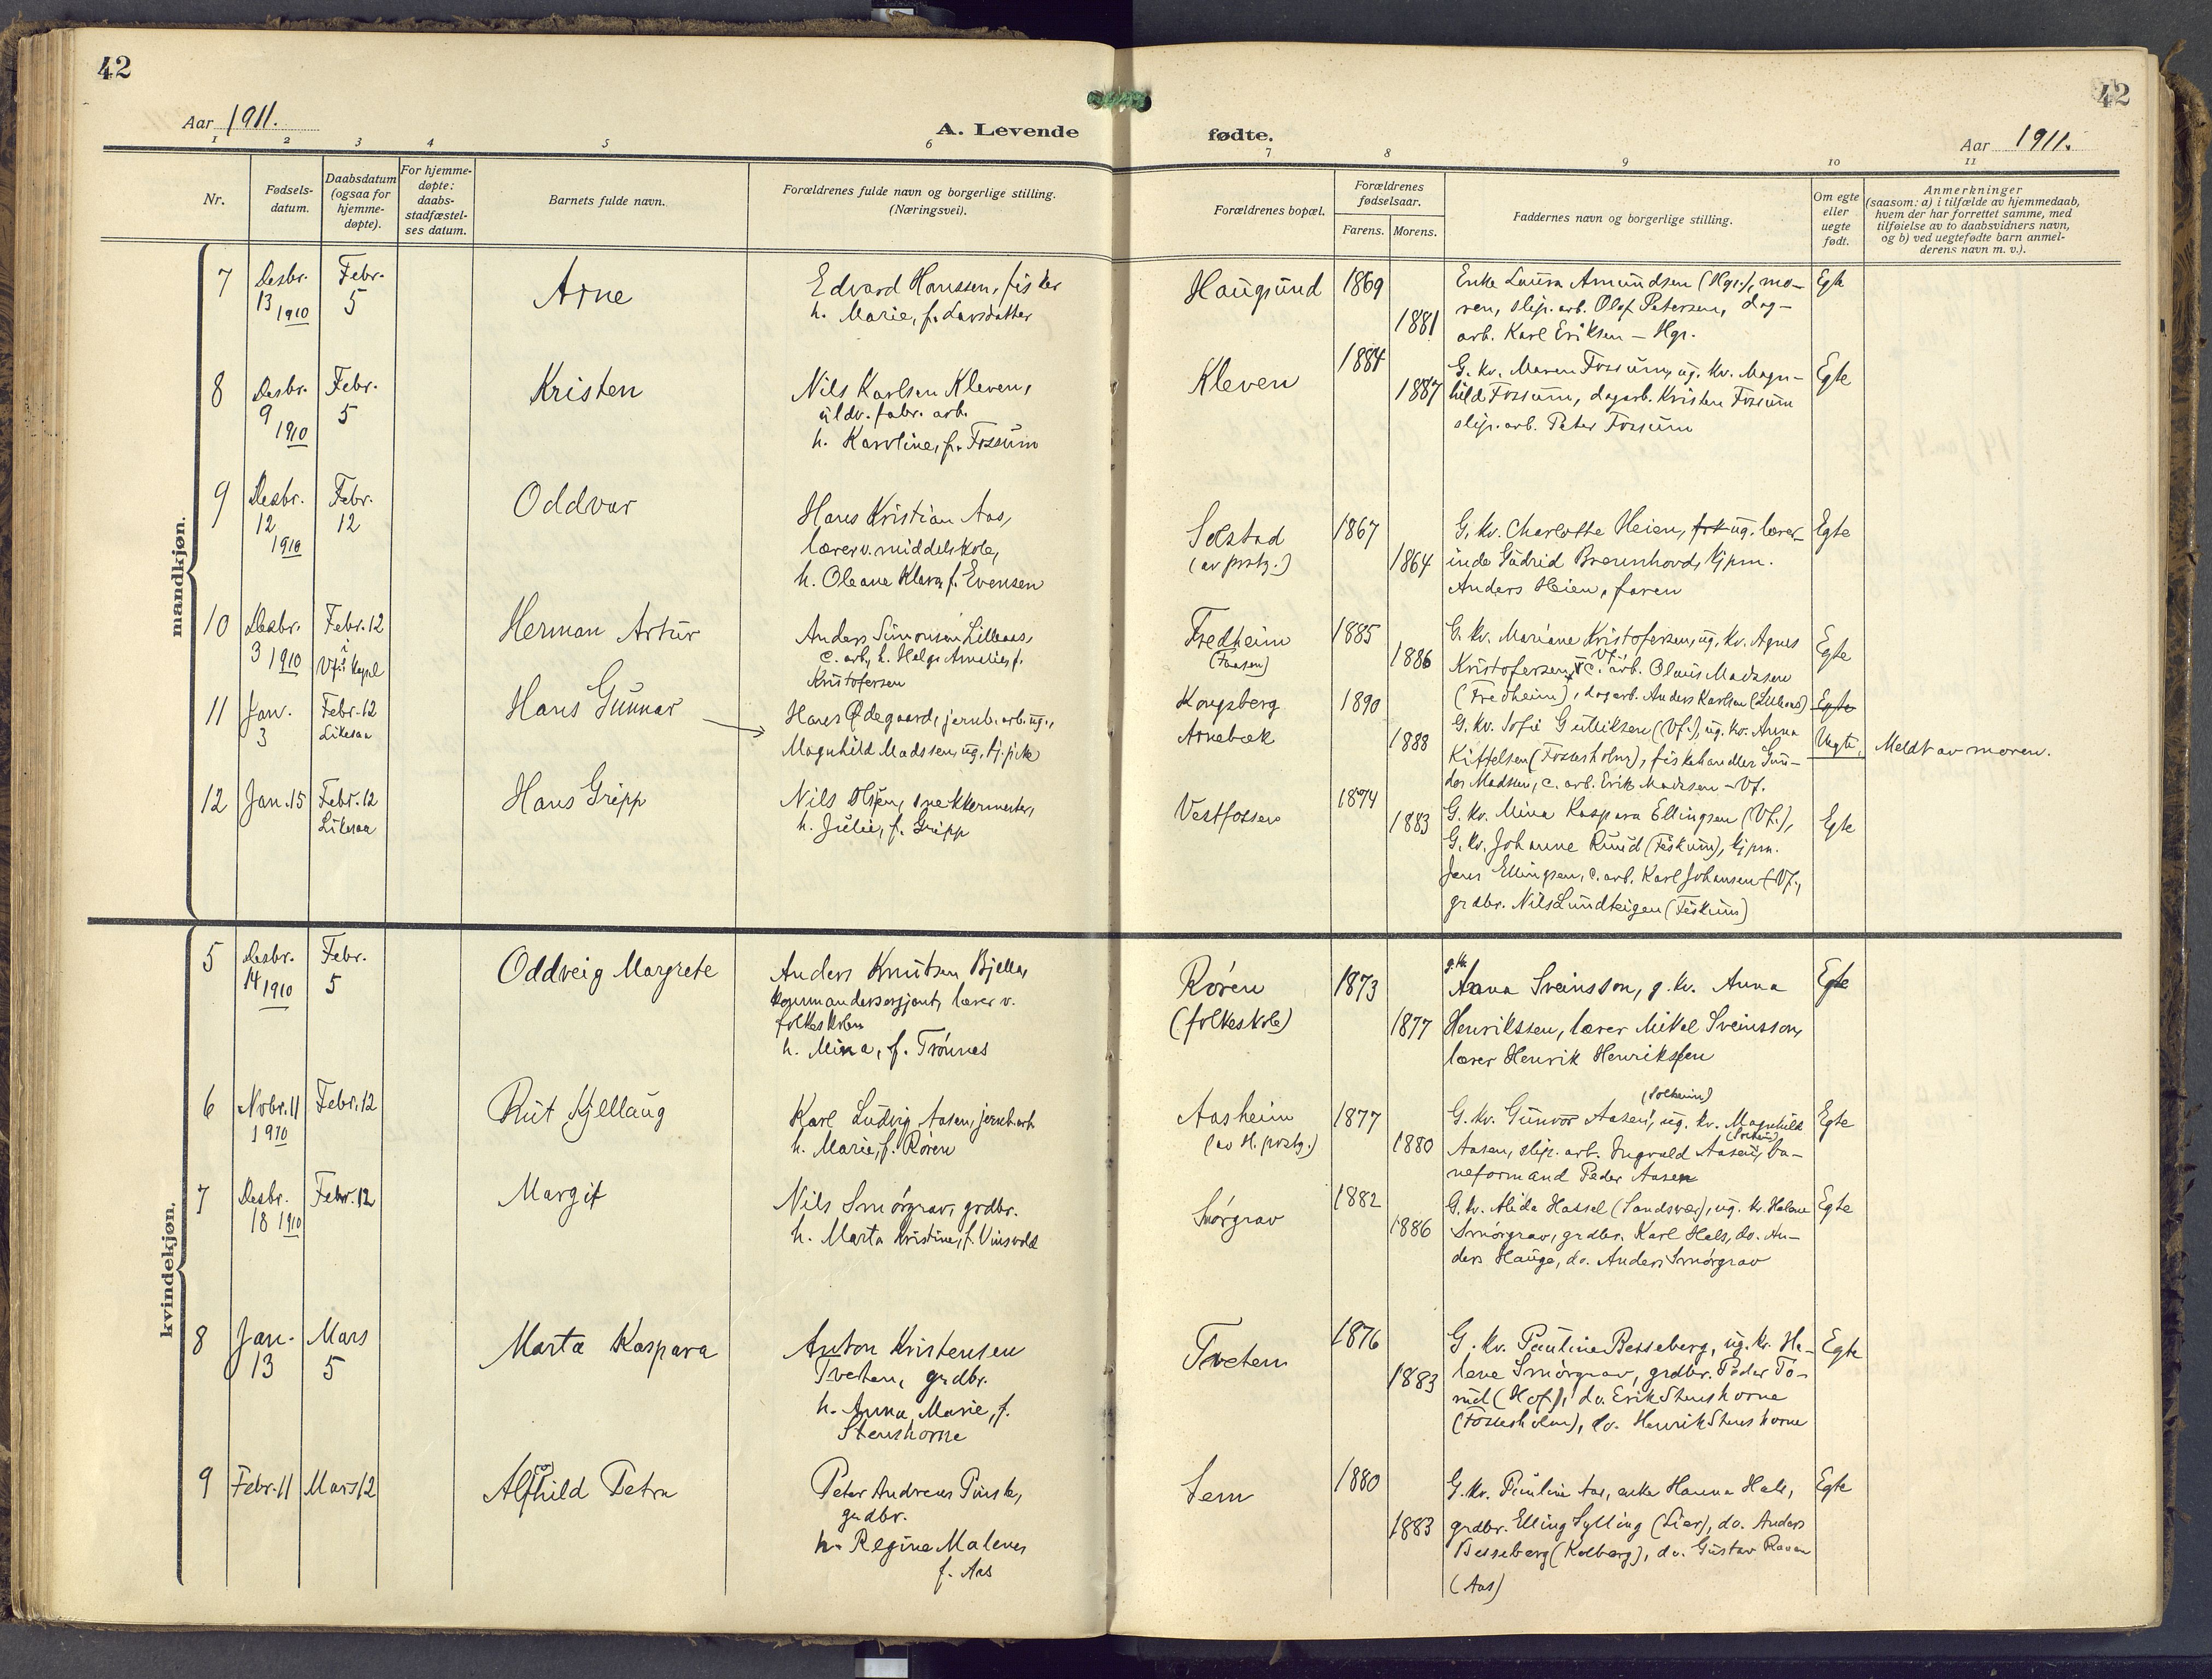 42
42
Aar 1911.
A. Levende
fødte.
Aar 1911.
1 2 3 4 5 6 7 8 9 10 11
Nr.
Fødsels-
datum.
Daabsdatum
(ogsaa for
hjemme-
døpte).
For hjemme-
døpte:
daabs-
stadfæstel-
ses datum.
Barnets fulde navn.
Forældrenes fulde navn og borgerlige stilling.
(Næringsvei).
Forældrenes bopæl.
Forældrenes
fødselsaar.
Farens. Morens.
Faddernes navn og borgerlige stilling.
Om egte
eller
uegte
født.
Anmerkninger
(saasom: a) i tilfælde av hjemmedaab,
hvem der har forrettet samme, med
tilføielse av to daabsvidners navn,
og b) ved uegtefødte barn anmel-
derens navn m. v.).
mandkjøn.
7
Desbr.
13 1910
Febr.
5
Arne
Edvard Hanssen, fisker
h. Marie, f. Larsdatter
Haugsund
1869
1881
Enke Laura Amundsen (Hgs.), mo-
ren, slip. arb. Olof Petersen, dag-
arb. Karl Eriksen – Hgs.
Egte
8
Desbr.
9
1910
Febr.
5
Kristen
Nils Karlsen Kleven,
uldv. fabr. arb.
h. Karoline, f. Fossum
Kleven
1884
1887
G. kv. Maren Fossum, ug. kv. Magn-
hild Fossum, dagarb. Kristen Fossum
slip. arb. Peter Fossum
Egte
9
Desbr.
12
1910
Febr.
12
Oddvar
Hans Kristian Aas,
lærer v. middelskole,
h. Oleane Klara, f. Evensen
Solstad
(av prstg.)
1867
1864
G. kv. Charlotte Heien, ug. lærer-
inde Gudrid Brennhovd, kjpm.
Anders Heien, faren
Egte
10
Desbr.
3 1910
Febr. 12
i
Vf.s kapel
Herman Artur
Anders Simonsen Lilleaas,
c. arb, h. Helga Amalie, f.
Kristofersen
Fredheim
(Faasen)
1885
1886
G. kv. Mariane Kristofersen, ug. kv. Agnes
Kristofersen, Vf. c. arb. Olaus Madssen
(Fredheim), dagarb. Anders Karlsen (Lilleaas)
Egte
11
Jan.
3
Febr. 12
Likesaa
Hans Gunnar
Hans Ødegaard, jernb. arb. ug.,
Magnhild Madssen, ug. tj. pike
Kongsberg
Arnebæk
1890
1888
G. kv. Sofie Gulliksen (Vf.), ug. kv. Anna
Kittelsen (Fossesholm), fiskehandler Gun-
der Madsen, c. arb. Erik Madssen – Vf.
Egte
Uegte.
Meldt av moren.
12
Jan. 15
Febr. 12
Likesaa
Hans Gripp
Nils Olsen, snekkermester,
h. Julie, f. Gripp
Vestfossen
1874
1883
G. kv. Mina Kaspara Ellingsen (Vf.),
G. kv. Johanne Ruud (Fiskum), kjpm.
Jens Ellingsen, c. arb. Karl Johansen – Vf.,
grdbr. Nils Lundteigen (Fiskum)
Egte
kvindekjøn.
5
Desbr.
14 1910
Febr.
5
Oddveig Margrete
Anders Knutsen Bjella,
kommandersergjant, lærer v.
folkeskolen
h. Mina, f. Trönnes
Rören
(folkeskole)
1873
1877
g. kv.
Anna Sveinsson, g. kv. Anna
Henrikssen, lærer Mikal Sveinsson,
lærer Henrik Henrikssen
Egte
6
Novbr. 11
1910
Febr. 12
Rut Kjellaug
Karl Ludvig Aasen, jernb. arb.
h. Marie, f. Rören
Aasheim
(av H. prstg.)
1877
1880
(Solheim)
G. kv. Gunvor Aasen, ug. kv. Magnhild
Aasen, slip. arb. Ingvald Aasen, (Solheim) ba-
neformand Peder Aasen
Egte
7
Desbr.
18 1910
Febr. 12
Margit
Nils Smörgrav, grdbr.
h. Marta Kristine, f. Vinsvold
Smörgrav
1882
1886
G. kv. Alida Hassel (Sandsvær), ug. kv. Helene
Smörgrav, grdbr. Karl Hals, do. An-
ders Hauge, do. Anders Smörgrav
Egte
8
Jan.
13
Mars
5
Marta Kaspara
Anton Kristensen
Tveten, grdbr.
h. Anna Marie, f.
Stenshorne
Tveten
1876
1883
G. kv. Pauline Besseberg, ug. kv. He-
lene Smörgrav, grdbr. Peder To-
rud (Hof), do. Erik Stenshorne
(Fossesholm), do. Henrik Stenshorne
Egte
9
Febr. 11
Mars 12
Alfhild Petra
Peter Andreas Purstø,
grdbr.
h. Regine Malene,
f. Aas
Sem
1880
1883
G. kv. Pauline Aas, enke Hanna Hals,
grdbr. Elling Sylling (Lier), do. Anders
Besseberg (Kolberg), do. Gustav Raaen
(Aas)
Egte